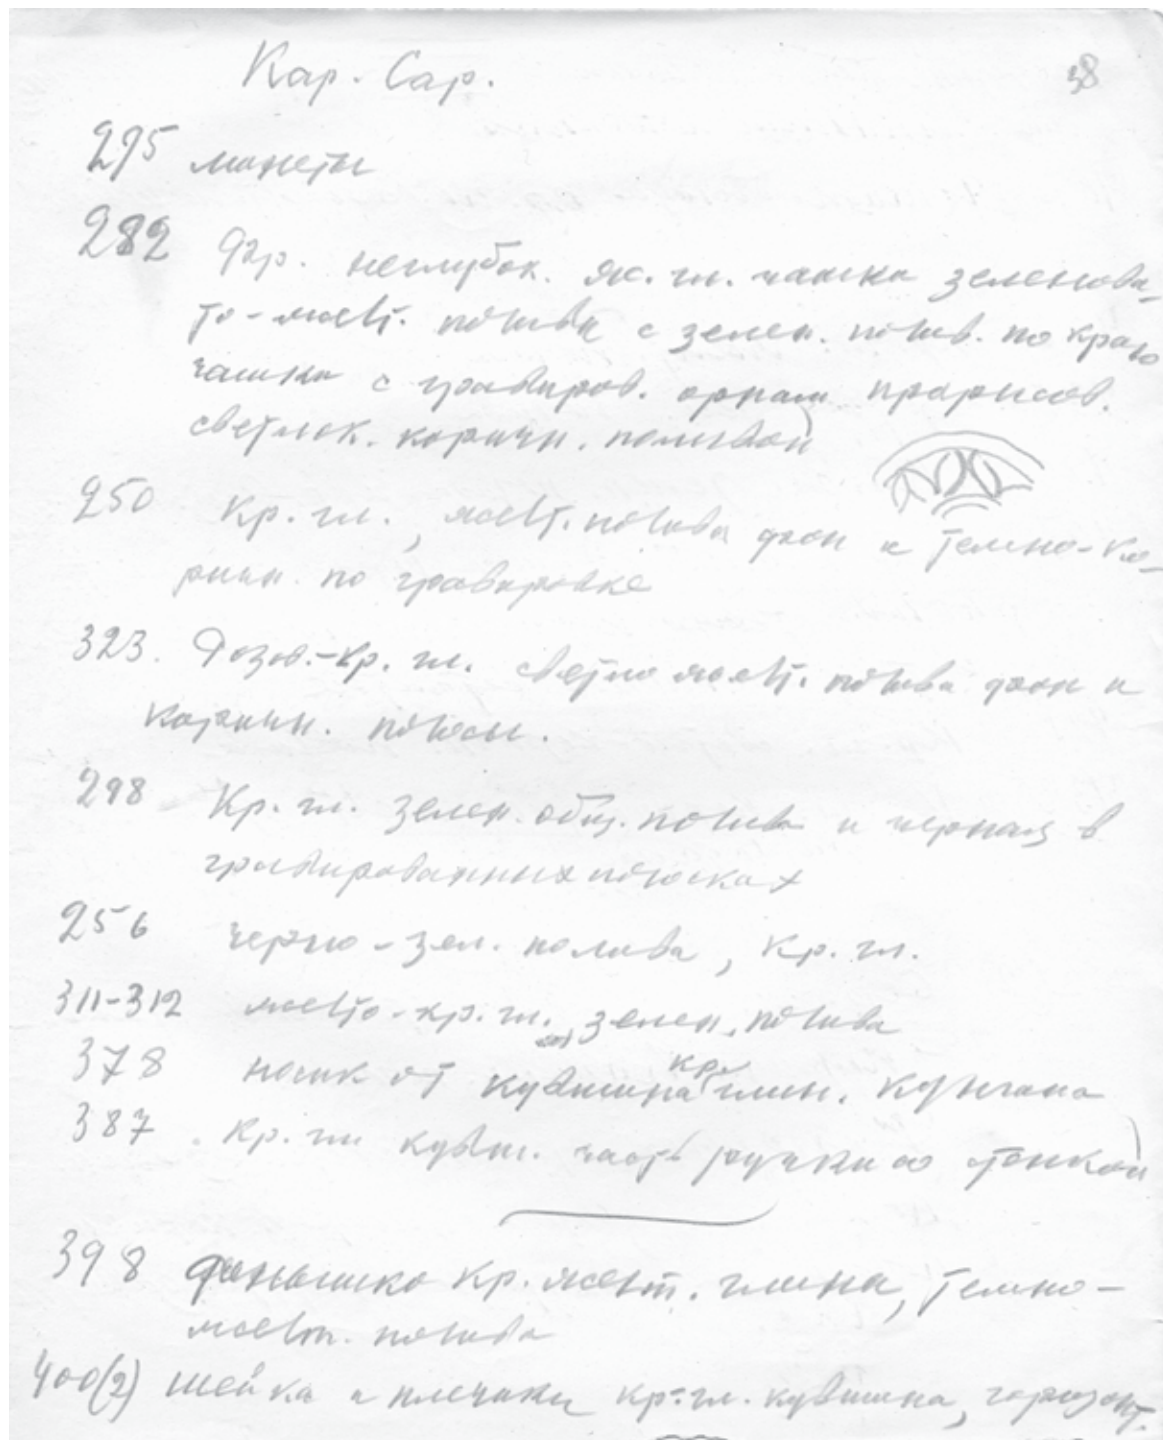 Кар. Сар.
38
295 монеты
282 Фр. неглубок. ж. гл. чашка зеленова-
то-желт. полива с зелен. полив. по краю
чашки с гравиров. орнам прорисов.
светлок. коричн. поливой
250 Кр. гл., желт. полива фон и темно-ко-
ричн. по гравировке
323. Розов.-кр. гл. светло желт. полива фон и
коричн. полосы.
298 Кр. гл. зелен. общ. полива и черная в
гравированных полосках
256 черно-зел. полива, кр. гл.
311-312 желто-кр. гл. зелен. полива
378 носик от кувшина кр. глин. кумгана
387 кр. гл кувш. часть ручки со стенкой
398 донышко кр. желт. глина, темно-
желт. полива
400(2) шейка и плечики кр. гл. кувшина, горизонт.